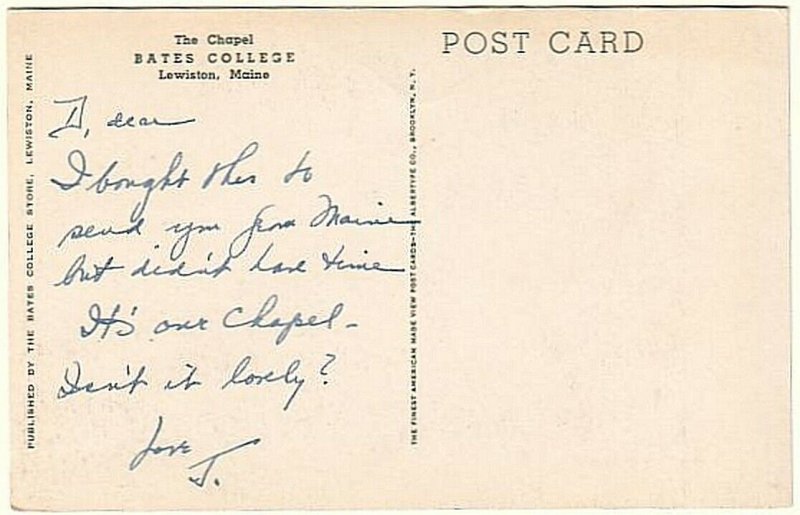 The Chapel
BATES COLLEGE
Lewiston, Maine
POST CARD
PUBLISHED BY THE BATES COLLEGE STORE, LEWISTON, MAINE
D, dear
I bought this to
send you from Maine
but didn't have time
It's our Chapel -
Isn't it lovely?
Love
J.
THE FINEST AMERICAN MADE VIEW POST CARDS—THE ALBERTYPE CO., BROOKLYN, N. Y.